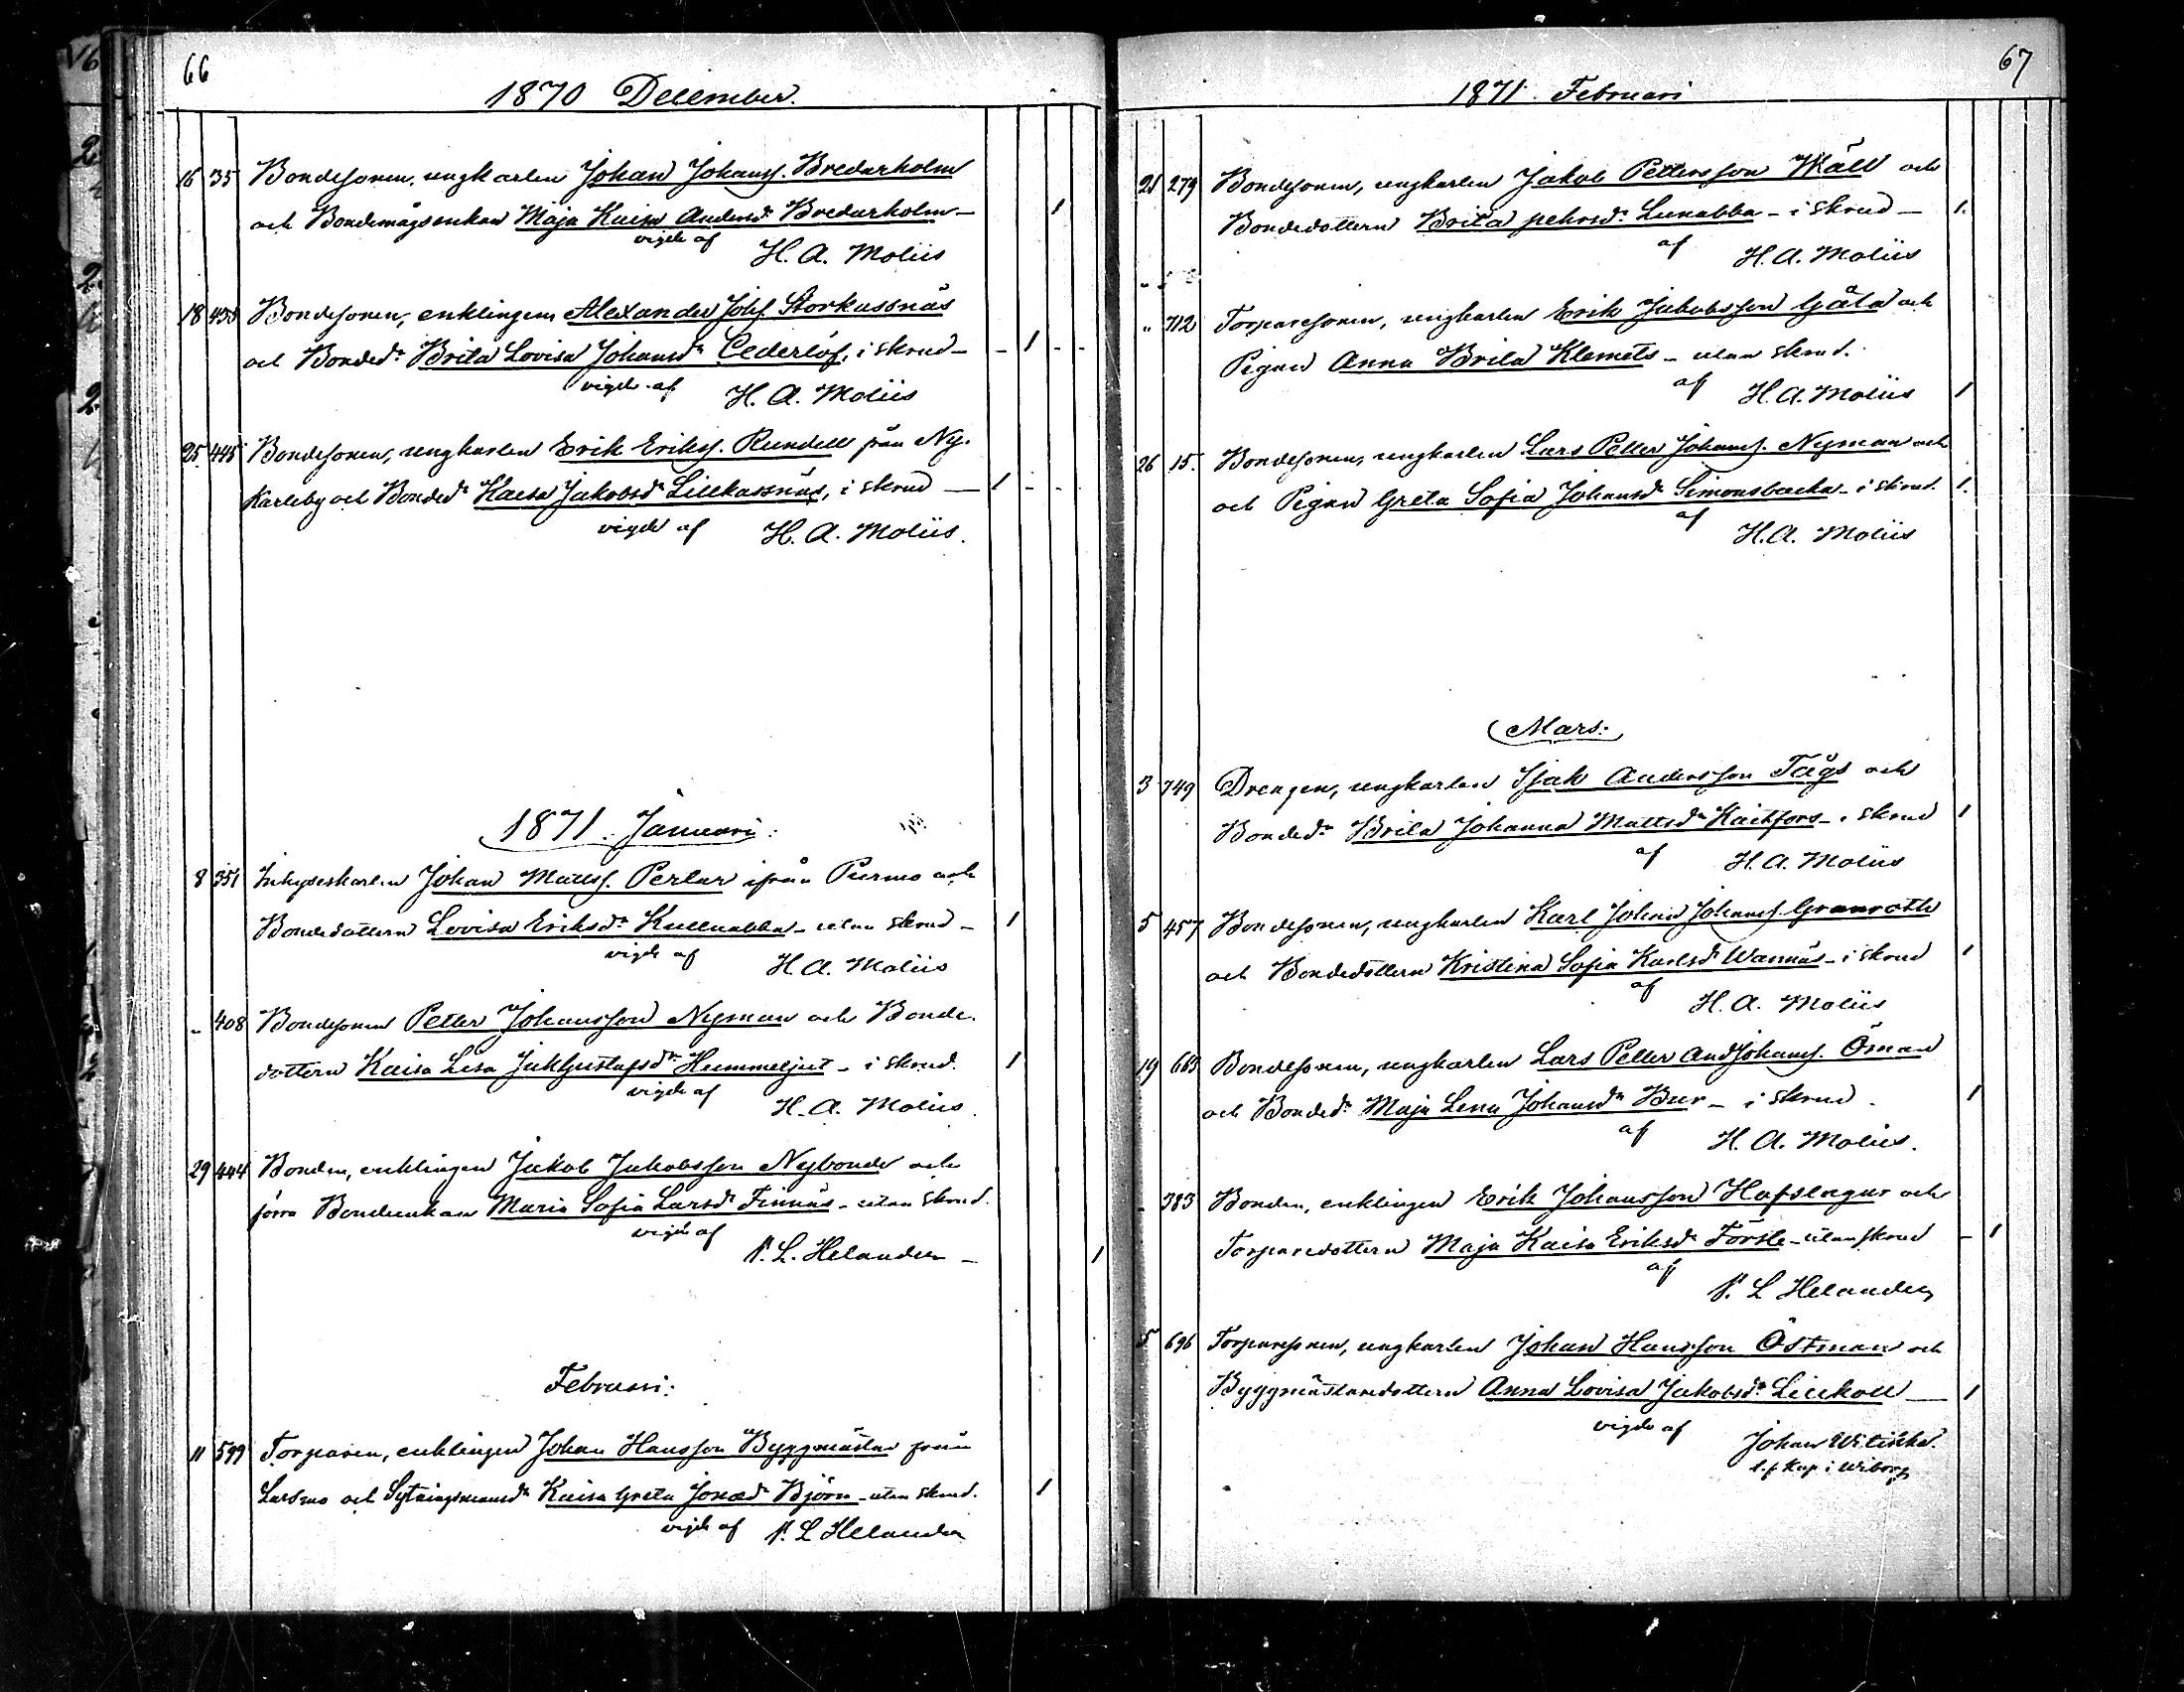 66
1870 December.
16 35 Bondesonen, ungkarlen Johan Johanss. Bredarholm
och Bondemågsenkan Maja Kaisa Andersdr Bredarholm – 1
vigde af H. A. Moliis
18 435 Bondesonen, enklingen Alexander Johss. Storkassnäs
och Bondedr Brita Lovisa Johansdr Cederlöf, i skrud – 1
vigde af H. A. Moliis
25 445 Bondesonen, ungkarlen Erik Erikss. Rundell från Ny-
karleby och Bondedr Kaisa Jakobsdr Lillkassnäs, i skrud – 1
vigde af H. A. Moliis.
1871. Januari:
8 351 Inhyseskarlen Johan Matss. Perlar ifrån Purmo och
Bondedottern Lovisa Eriksdr Kullnabba – utan skrud – 1
vigde af H. A. Moliis
„ 408 Bondesonen Petter Johansson Nyman och Bonde-
dottern Kaisa Lisa Jakbgustafsdr Hummeljut – i skrud. 1
vigde af H. A. Moliis.
29 444 Bonden, enklingen Jakob Jakobsson Nybonde och
förra Bondeenkan Maria Sofia Larsdr Finnäs – utan skrud.
vigde af P. L. Helander – 1
Februari:
11 599 Torparen, enklingen Johan Hansson Byggmästar från
Larsmo och Sytningsmansdr Kaisa Greta Jonædr Björn – utan skrud. 1
vigde af P. L Helander
67
1871. Februari
21 279 Bondesonen, ungkarlen Jakob Pettersson Wäll och
Bondedottern Brita pehrsdr Lunabba – i skrud – 1.
af H. A. Moliis
„ 712 Torparesonen, ungkarlen Erik Jakobsson Gåla och
Pigan Anna Brita Klemets – utan skrud.
af H. A. Moliis 1
26 15. Bondesonen, ungkarlen Lars Petter Johanss. Nyman och
och Pigan Greta Sofia Johansdr Simonsbacka – i skrud. 1.
af H. A. Moliis
Mars:
3 749 Drengen, ungkarlen Isak Andersson Tågs och
Bondedr Brita Johanna Mattsdr Kaitfors – i skrud 1
af H. A. Moliis
5 457 Bondesonen, ungkarlen Karl Johan Johanss. Granroth
och Bondedottern Kristina Sofia Karlsdr Wannäs – i skrud 1
af H. A. Moliis
19 663 Bondesonen, ungkarlen Lars Petter And Johanss. Öman
och Bondedr Maja Lena Johansdr Bur – i skrud. 1
af H. A. Moliis.
„ 383 Bonden, enklingen Erik Johansson Hafslagar och
Torparedottern Maja Kaisa Eriksdr Förste – utan skrud – 1
af P. L Helander
5 696 Torparesonen, ungkarlen Johan Hansson Östman och
Byggmästaredottern Anna Lovisa Jakobsdr Lillkåll – 1
vigde af Johan Witickka.
i Wiborg